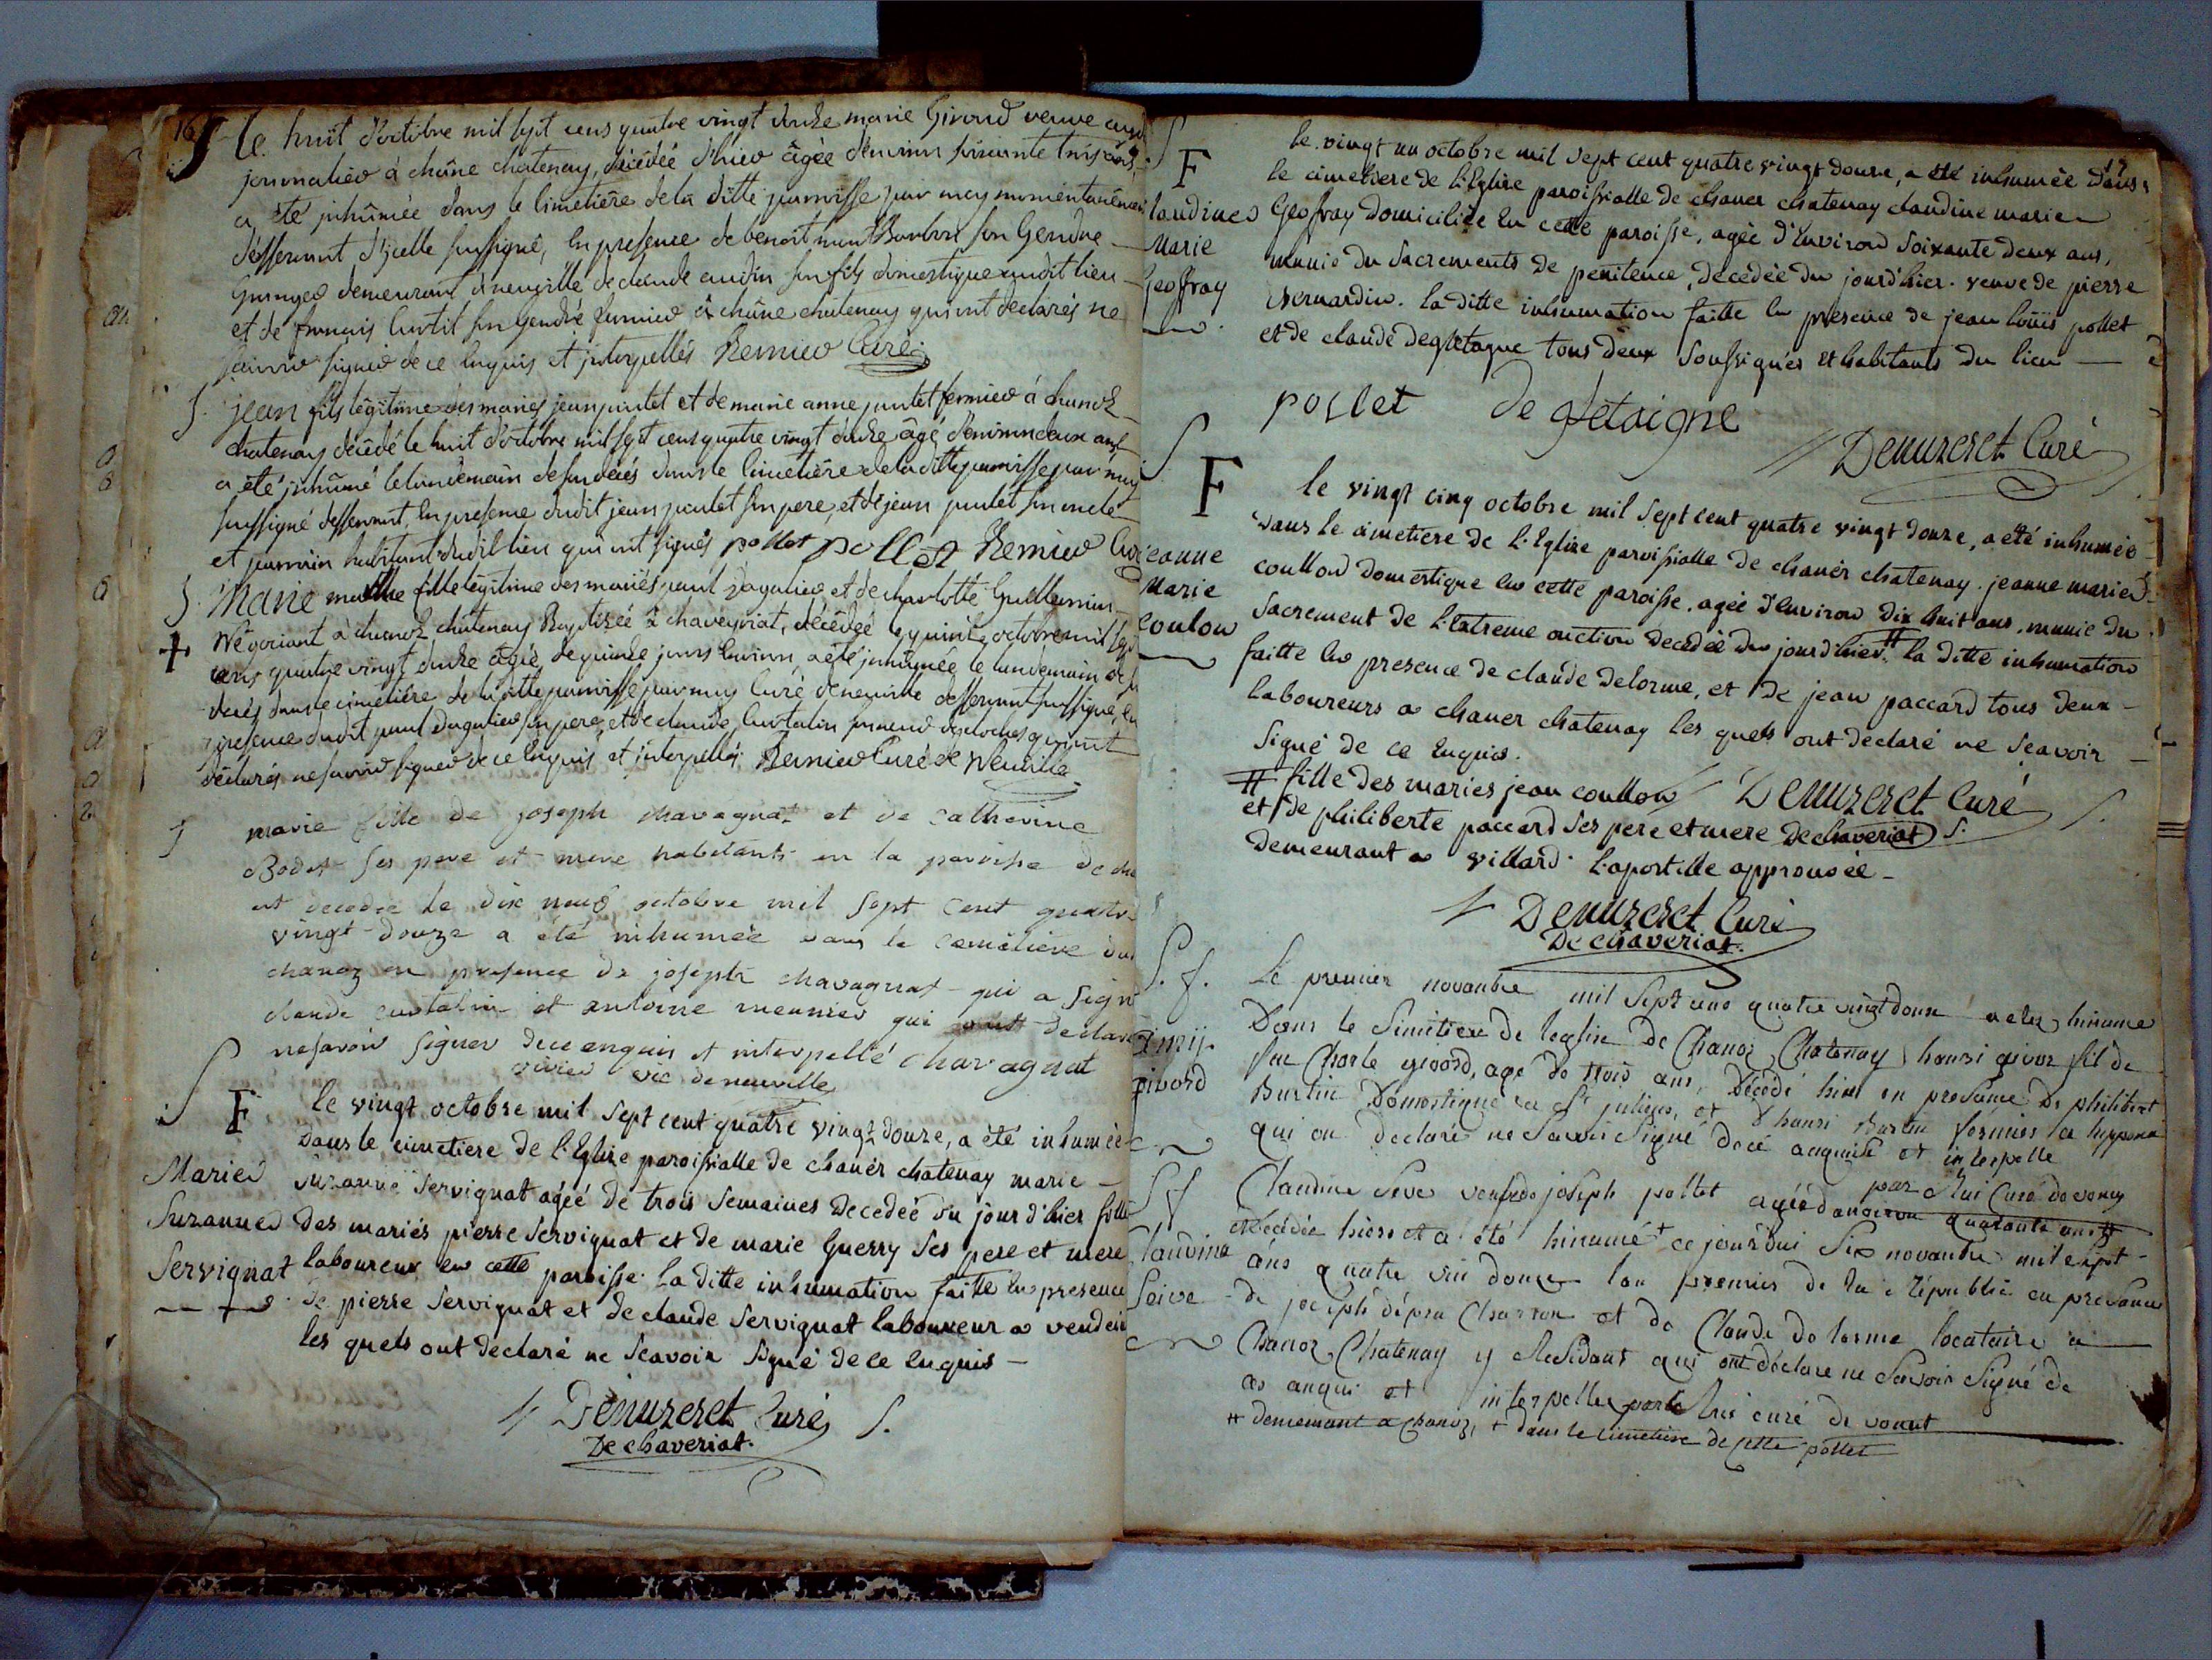 16
S le huit d'octobre mil sept cens quatre vingt douze marie Giroud veuve
journalier à châne chatenay, décédée d'hier âgée d'environ soixante trois ans,
a été inhûmée dans le cimetière de la ditte parroisse par moy momentanément
desservant d'icelle soussigné, en presence de benoit mont Barbon son Gendre
Granger demeurant à neuville de claude audin son fils domestique audit lieu
et de francois Curtil son gendre fermier à châne châtenay qui ont declarés ne
scavoir signer de ce enquis et interpellés Bernier Curé
S. jean fils légitime des mariés jean poulet et de marie anne poulet fermier à chanoz
chatenay décédé le huit d'octobre mil sept cens quatre vingt douze âgé d'environ deux ans
a été inhûmé le landemain de son décés dans le cimetière de la ditte parroisse par moy
soussigné desservant, en presence dudit jean poulet son pere, et de jean poulet son oncle
et parrain habitant dudit lieu qui ont signés pollet pollet Bernier Curé
S. Marie fille légitime des mariés paul Dagalier et de charlotte Guillermin
+ Négociant à chanoz châtenay Baptisée à chaveyriat, décédée quinze octobre mil sept
cens quatre vingt douze âgée de quinze jours environ, a été inhûmée le landemain de son
decés dans le cimetière de la ditte parroisse par moy Curé de neuville desservant soussigné, en
presence dudit paul Dagalier son pere, et de claude Curtalin qui ont
déclarés ne scavoir signer de ce enquis et interpellés Bernier Curé de Neuville
S marie fille de joseph chavagnat et de catherine
Bodet ses pere et mere habitants en la paroisse de
est decedée le dix neuf octobre mil sept cent quatre
vingt-douze a été inhumée dans le cemetiere du
chanoz en presence de joseph chavagnat qui a signé
claude curtalin et antoine meunier qui ont declaré
ne savoir signer de ce enquis et interpellé chavagnat
vivier vic de neuville
S F le vingt octobre mil sept cent quatre vingt douze, a été inhumée
dans le cimetiere de l'Eglise paroissialle de chanér chatenay marie
Marie suzanne servignat agéé de trois semaines decedéé du jour d'hier fille
Suzanne des mariés pierre servignat et de marie Guerry ses pere et mere
Servignat laboureur en cette paroisse. la ditte inhumation faitte en presence
de pierre servignat et de claude servignat laboureur a
les quels ont declaré ne scavoir signé de ce enquis
Demuzeret Curé S.
De chaveriat.
17
S F le vingt un octobre mil sept cent quatre vingt douze, a été inhumée dans
le cimetiere de l'Eglise paroissialle de chaner chatenay claudine marie
Claudine Geoffray domiciliée en cette paroisse, agée d'environ soixante deux ans,
Marie munie du sacrements de penitence, decédée du jourd'hier. veuve de pierre
Geoffray Bernardin. la ditte inhumation faitte en presence de jean loüis pollet
et de claude degletagne tous deux soussignés et habitants du lieu
pollet de gletaigne
Demuzeret Curé
S F le vingt cinq octobre mil sept cent quatre vingt douze, a été inhumée
dans le cimetiere de l'Eglise paroissialle de chanér chatenay. jeanne marie
Jeanne coullon domestique en cette paroisse. agée d'environ dix huit ans. munie du
Marie sacrement de l'Extreme onction decédée du jourd'hier. # la ditte inhumation
Coulon faitte en presence de claude delorme, et de jean paccard tous deux
laboureurs a chaner chatenay les quels ont declaré ne scavoir
signé de ce enquis.
# fille des maries jean coullon Demuzeret Curé
et de philiberte paccard ses pere et mere De chaveriat S.
demeurant a villard. l'apostille approuvée
Demuzeret Curé
De chaveriat.
S. f. Le premier novanbre mil sept cens quatre vingt douse a eté hinumé
Dans le Simitiere de leglise de Chanoz Chatenay hanri givor fil de
feu Charle givord, agé de trois ans, Décédé hier en presance de philibert
givord Burtin Domestique a St julien, et d'hanri Burtin fermier a
qui on declaré ne Savoir Signé dece anquis et interpelle
par Mui Curé de vonn
S f Claudine Seve veuve de joseph pollet agée d'anviron quarante ans #
decédée hière et a été hinumé + ce jourdui Six novanbre mil sept
Claudine ans quatre vin douze lan premier de la république en presance
Seive de joseph dépra Charron et de Claude de lorme locataire a
Chanoz Chatenay y Residant qui ont déclare ne Savoir Signé de
ce anqui et interpelle par Mui curé de vonnt
# demeurant a Chanoz, + dans le cimetiere de cette pollet